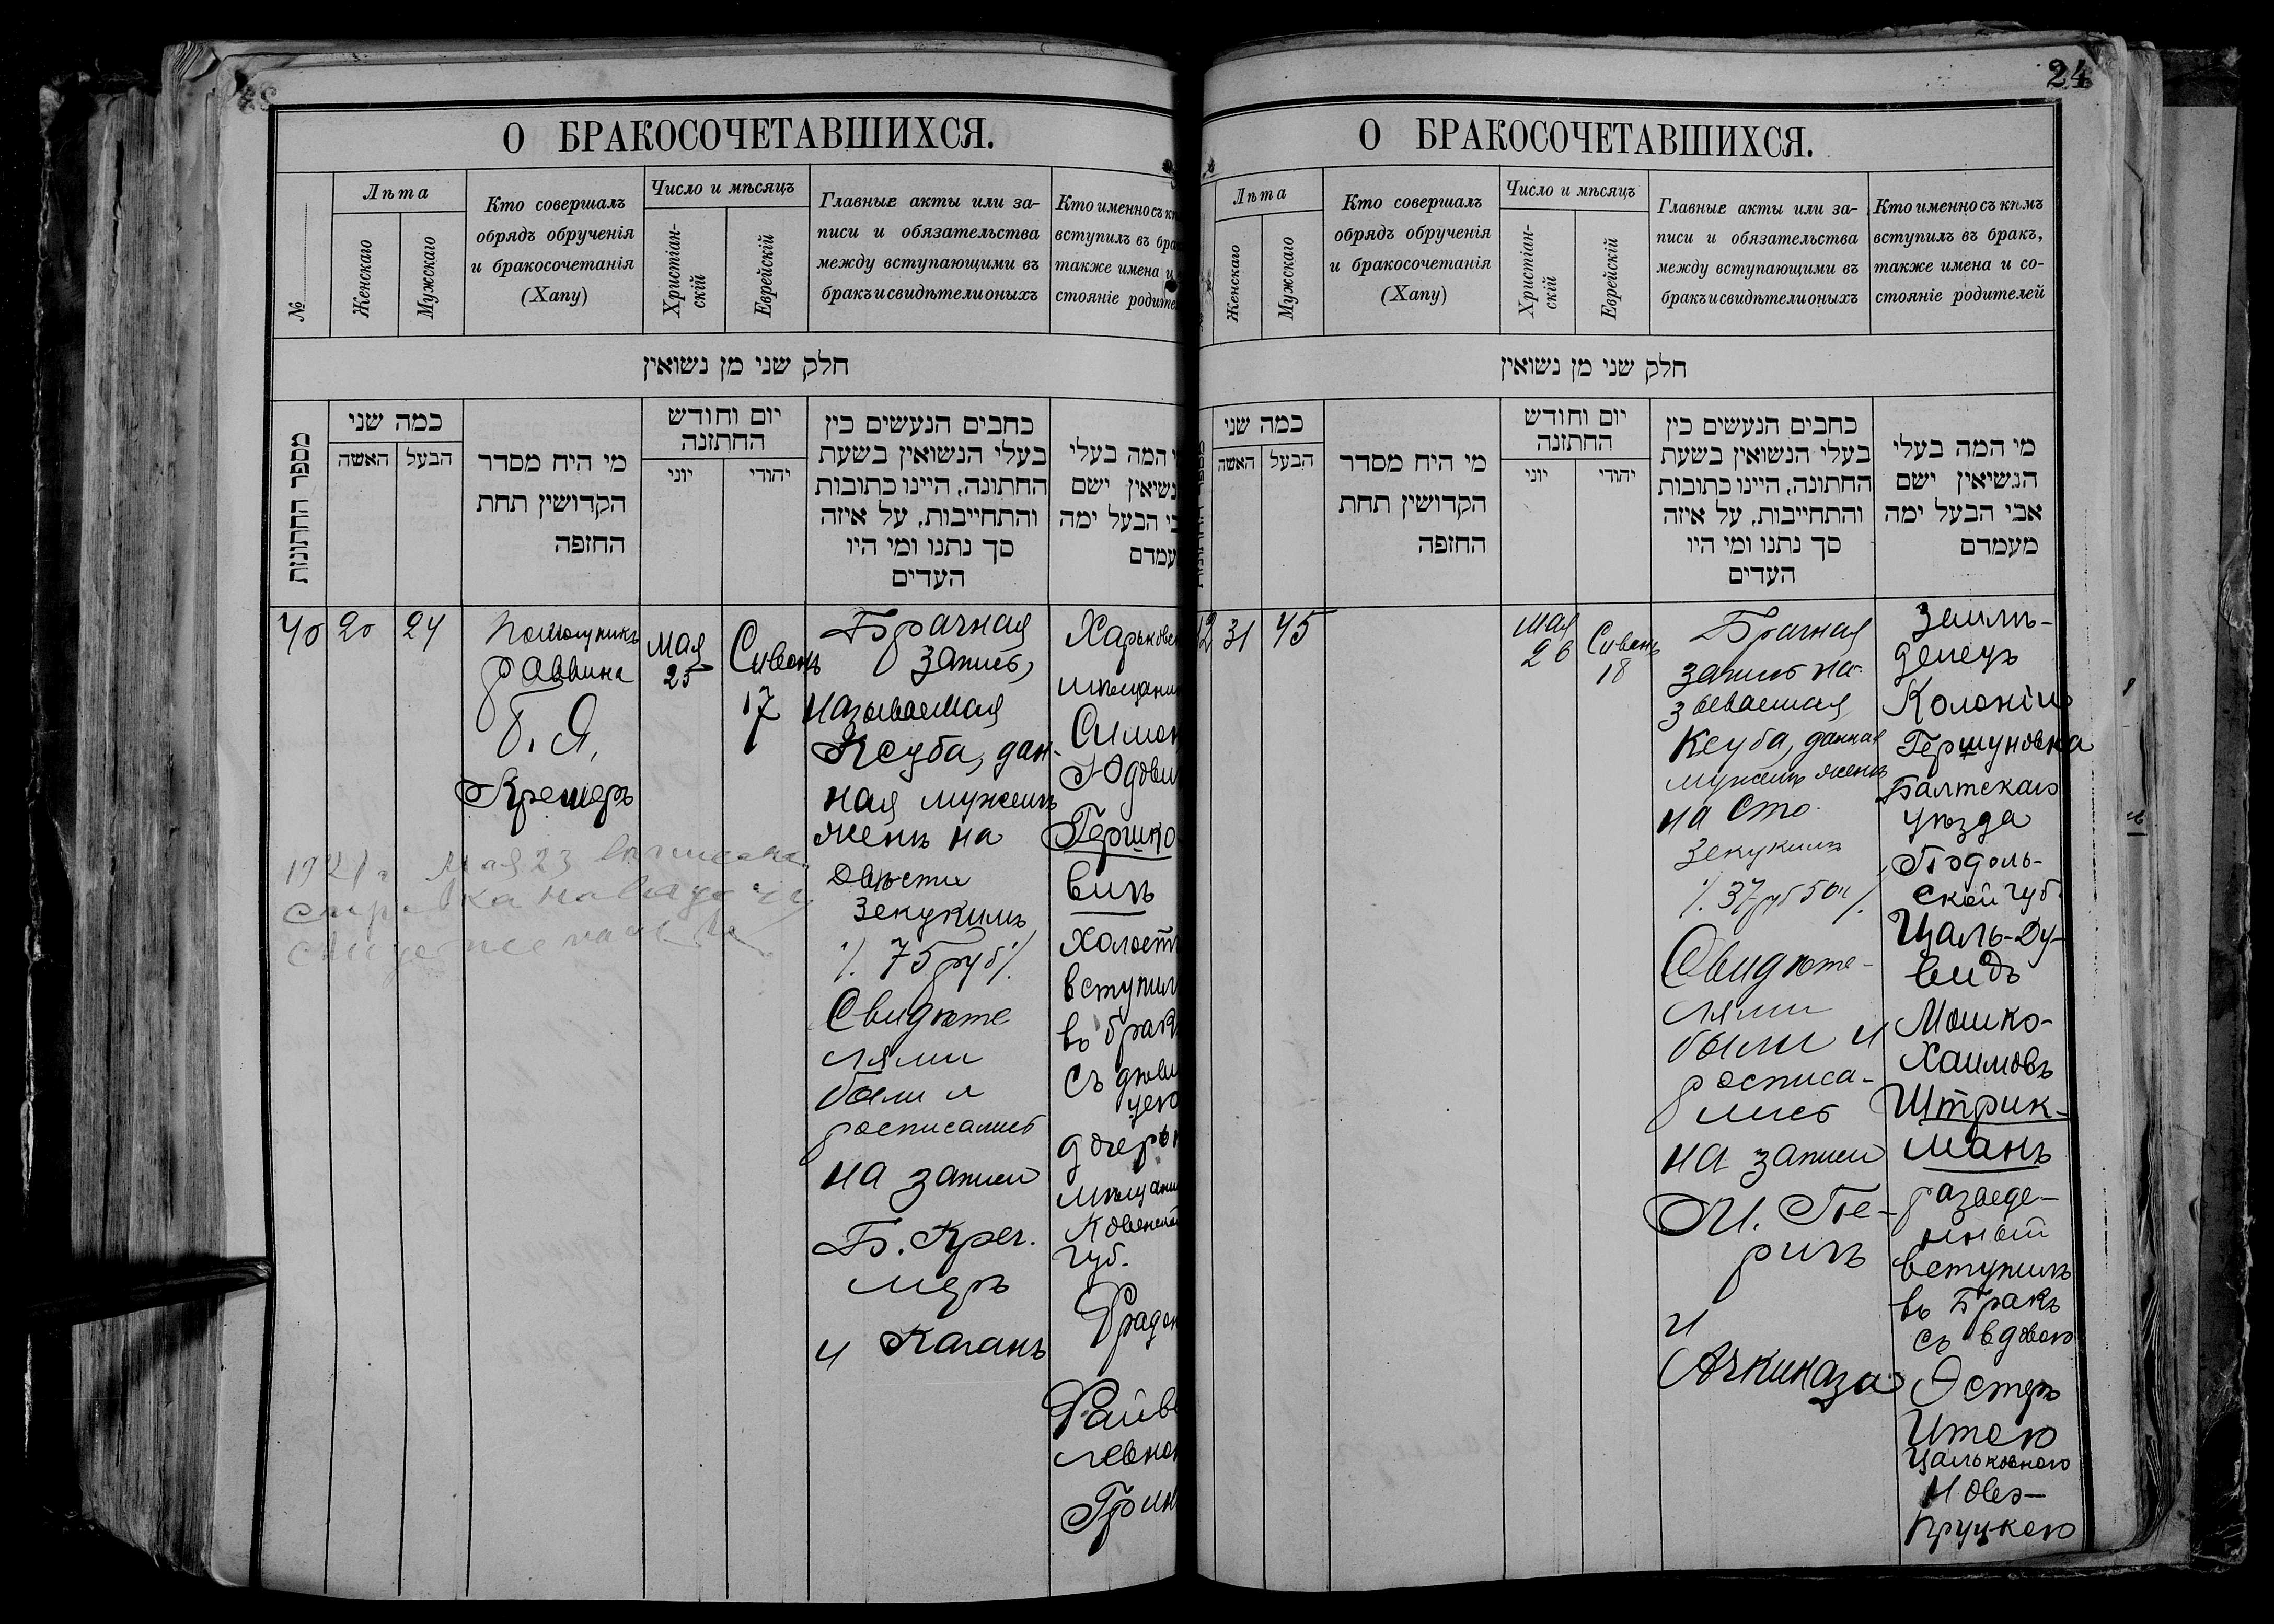 О БРАКОСОЧЕТАВШИХСЯ.
№
Лѣта
Женскаго
Мужскаго
Кто совершалъ
обрядъ обрученія
и бракосочетанія
(Хапу)
Число и мѣсяцъ
Христіан-
скій
Еврейскій
Главные акты или за-
писи и обязательства
между вступающими въ
бракъ и свидѣтели оныхъ
Кто именно съ
вступилъ въ
также имена
стояніе
חלק שני מן נשואין
מספר החתונות
כמה שני
האשה
הבעל
מי היח מסדר
הקדושין תחת
החופה
יום וחודש
החתונה
יוני
יהודי
כחבים הנעשים כין
בעלי הנשואין בשעת
החתונה, היינו כתובות
והתחייבות, על איזה
סך נתנו ומי היו
העדים
המה בעלי
נשיאין ישם
הבעל ימה
40
20
24
Помощникъ
раввина
Б. Я.
Кремеръ
Мая
25
Сивонъ
17
Брачная
запись,
называемая
Ксуба, дан-
ная мужемъ
женѣ на
двѣсти
зекукимъ
/. 75 руб /.
Свидѣте
лями
были и
росписались
на записи
Б. Кре-
меръ
и Каганъ
Симон
Гершко-
вичъ
въ
съ
губ.
1921 г. Мая 23
О БРАКОСОЧЕТАВШИХСЯ.
24
Лѣта
Женскаго
Мужскаго
Кто совершалъ
обрядъ обрученія
и бракосочетанія
(Хапу)
Число и мѣсяцъ
Христіан-
скій
Еврейскій
Главные акты или за-
писи и обязательства
между вступающими въ
бракъ и свидѣтели оныхъ
Кто именно съ кѣмъ
вступилъ въ бракъ,
также имена и со-
стояніе родителей
חלק שני מן נשואין
כמה שני
האשה
הבעל
מי היח מסדר
הקדושין תחת
החופה
יום וחודש
החתונה
יוני
יהודי
כחבים הנעשים כין
בעלי הנשואין בשעת
החתונה, היינו כתובות
והתחייבות, על איזה
סך נתנו ומי היו
העדים
מי המה בעלי
הנשיאין ישם
אבי הבעל ימה
מעמדם
31
45
Мая
26
Сивонъ
18
Брачная
запись на-
зываемая
Ксуба, данная
мужемъ женѣ
на сто
зекукимъ
/. 37 руб 50 к /.
Свидѣте-
лями
были и
росписа-
лись
на записи
М. Пе-
ричъ
и
Ачкинази
Землѣ-
делецъ
Колоніи
Гершуновка
Балтскаго
уѣзда
Подоль-
ской губ.
Цаль-Ду-
видъ
Мошко-
Хаимовъ
Штрик-
манъ
разведе-
нный
вступилъ
въ Бракъ
съ вдовою
Эстеръ
Итою
Цальковною
Ново-
Пруцкою